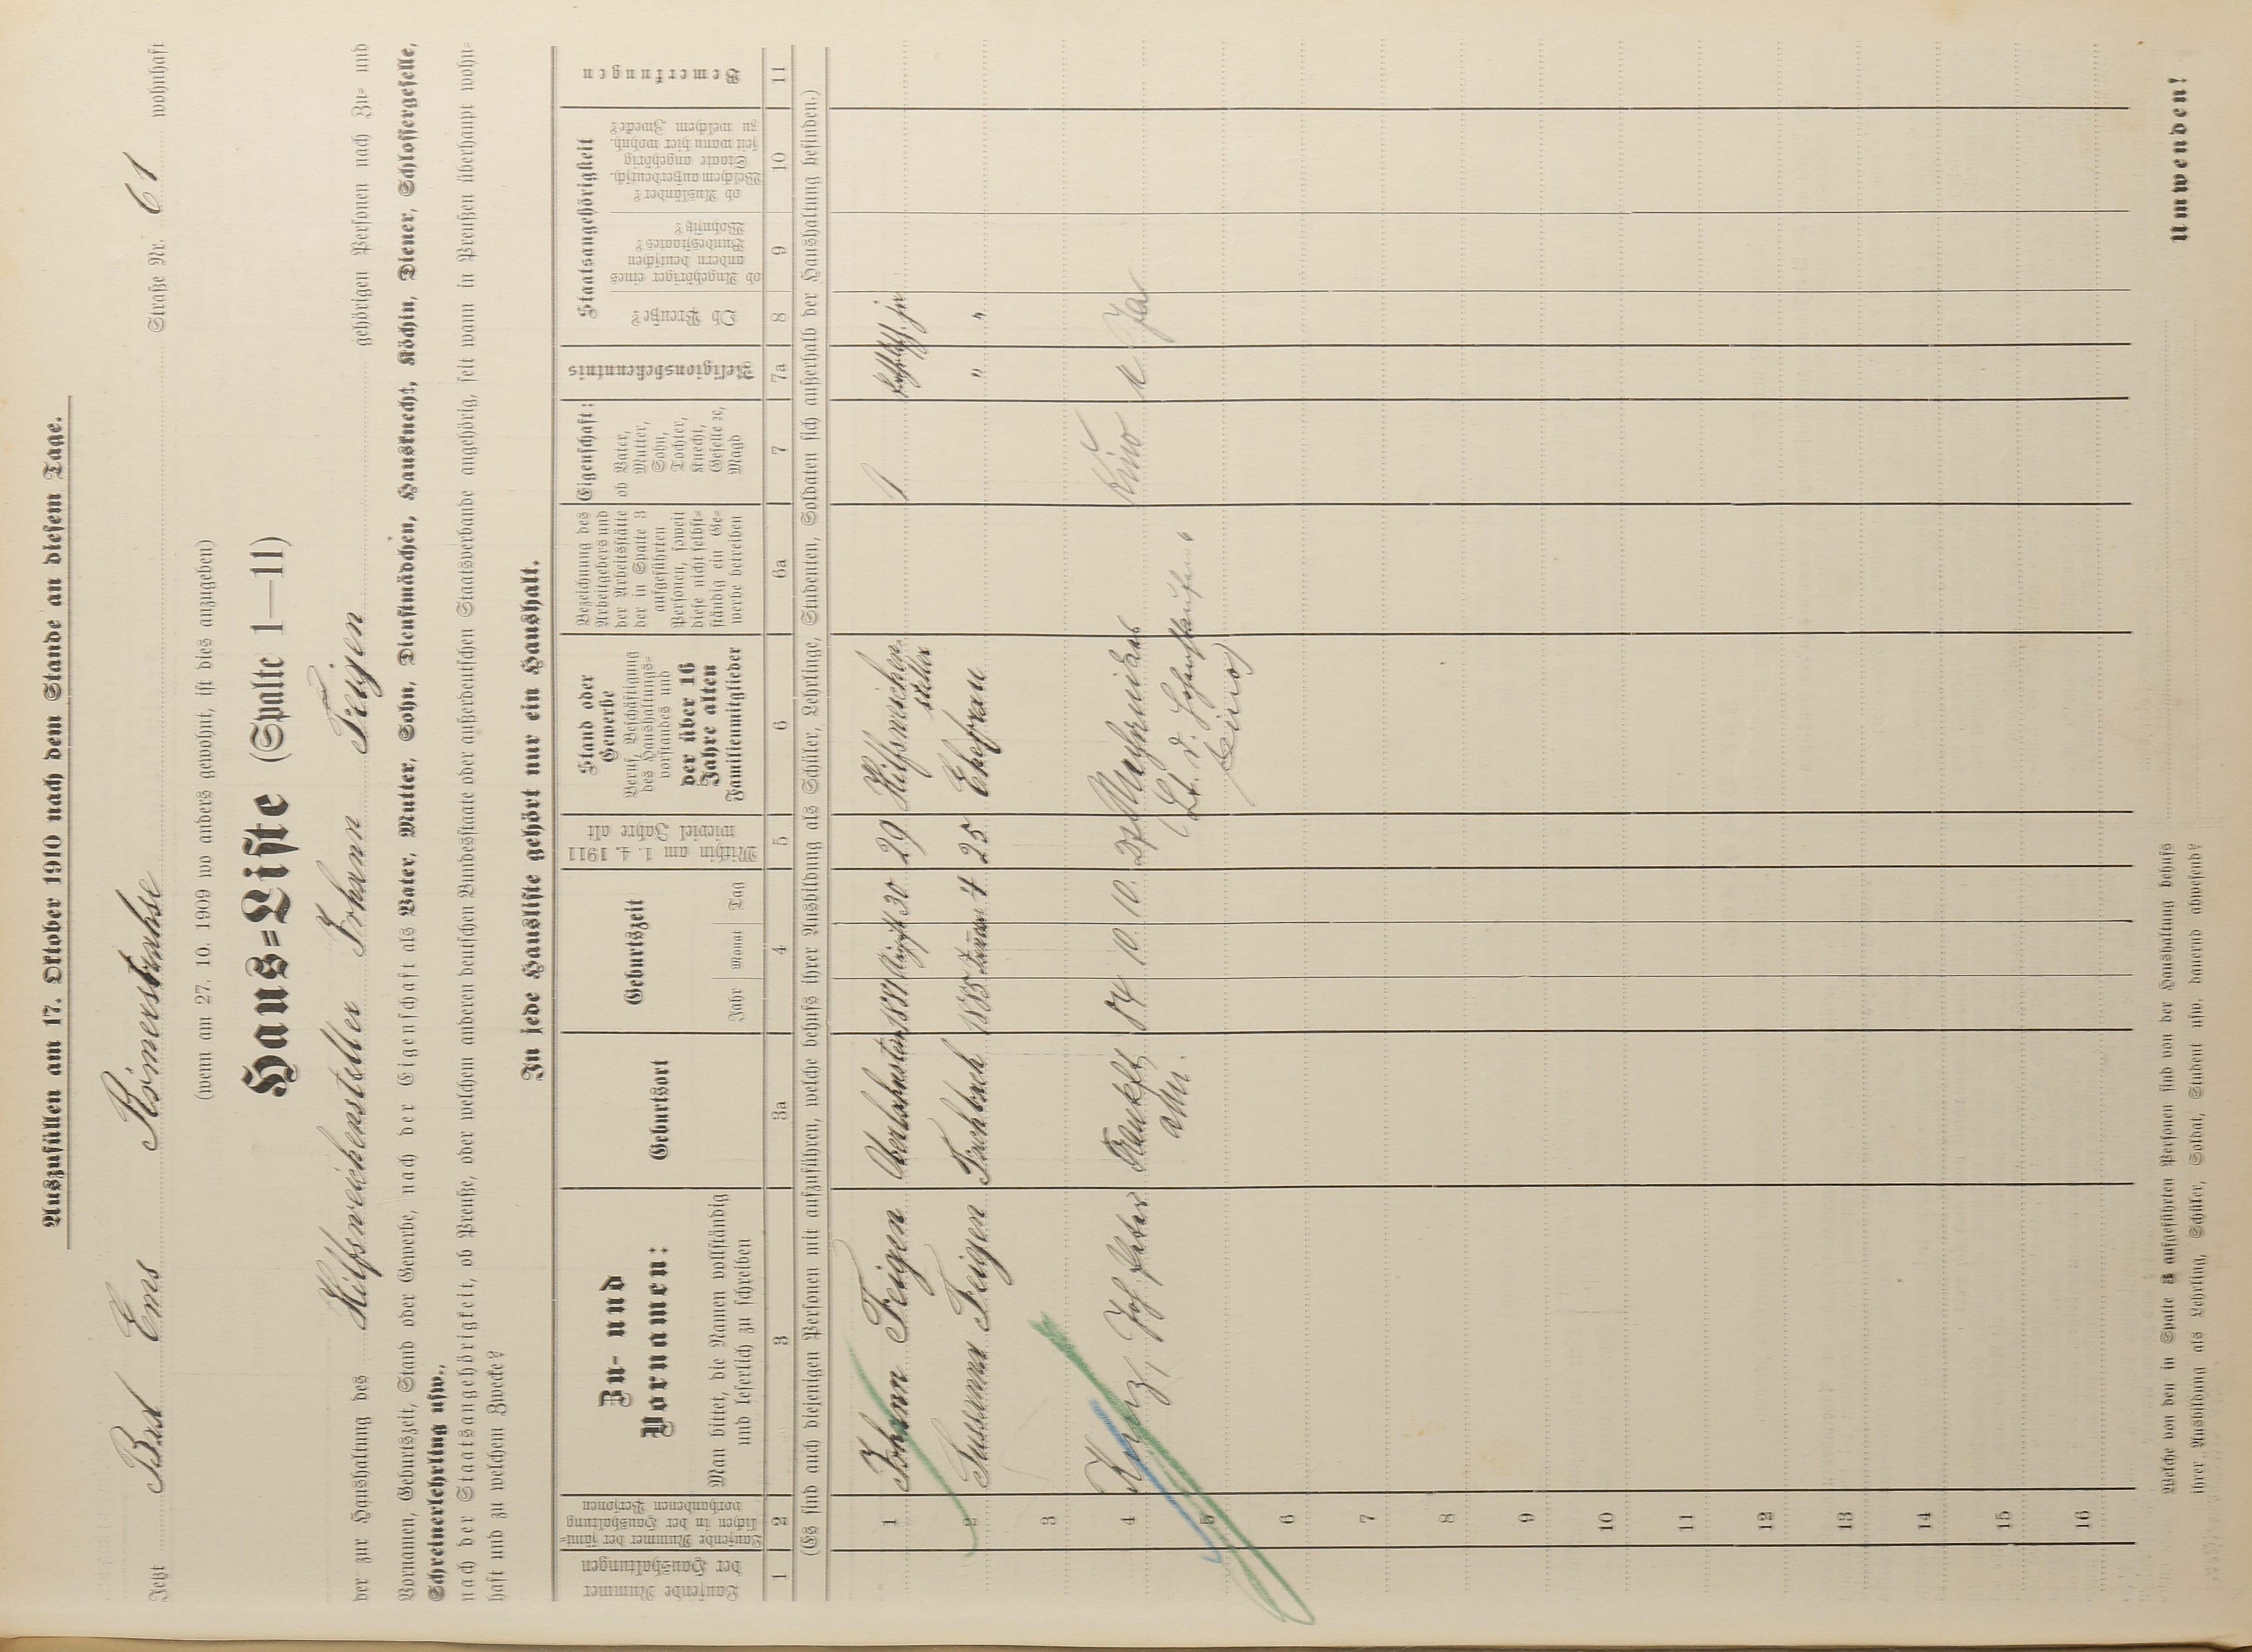 Auszufüllen am 17. Oktober 1910 nach dem Stande an diesem Tage.
Jetzt Bad Ems Römerstrahse Straße Nr. 61 wohnhaft
(wenn am 27. 10. 1909 wo anders gewohnt, ist dies anzugeben)
Haus=Liste (Spalte 1—11)
der zur Haushaltung des Hilfsweichensteller Johann Feigen gehörigen Personen nach Zu= und
Vornamen, Geburtszeit, Stand oder Gewerbe, nach der Eigenschaft als Vater, Mutter, Sohn, Dienstmädchen, Hausknecht, Köchin, Diener, Schlossergeselle,
Schreinerlehrling usw.,
nach der Staatsangehörigkeit, ob Preuße, oder welchem anderen deutschen Bundesstaate oder außerdeutschen Staatsverbande angehörig, seit wann in Preußen überhaupt wohn=
haft und zu welchem Zwecke?
In jede Hausliste gehört nur ein Haushalt.
Laufende Nummer
der Haushaltungen
Laufende Nummer der sämt=
lichen in der Haushaltung
vorhandenen Personen
Zu- und
Vornamen:
Man bittet, die Namen vollständig
und leserlich zu schreiben
Geburtsort
Geburtszeit
Jahr Monat Tag
Mithin am 1. 4. 1911
wieviel Jahre alt
Stand oder
Gewerbe
Beruf, Beschäftigung
des Haushaltungs=
vorstandes und
der über 16
Jahre alten
Familienmitglieder
Bezeichnung des
Arbeitgebers und
der Arbeitsstätte
der in Spalte 3
aufgeführten
Personen, soweit
diese nicht selbst=
ständig ein Ge=
werbe betreiben
Eigenschaft:
ob Vater,
Mutter,
Sohn,
Tochter,
Knecht,
Geselle ec,
Magd
Religionsbekenntnis
Staatsangehörigkeit
Ob Preuße?
ob Angehöriger eines
andern deutschen
Bundesstaates?
Wohnsitz?
ob Ausländer?
Welchem außerdeutsch.
Staate angehörig
seit wann hier wohnh.
zu welchem Zwecke?
Bemerkungen
1 2 3 3a 4 5 6 6a 7 7a 8 9 10 11
(Es sind auch diejenigen Personen mit aufzuführen, welche behufs ihrer Ausbildung als Schüler, Lehrlinge, Studenten, Soldaten sich außerhalb der Haushaltung befinden.)
1 Johann Feigen Oberlahnstein 1881 August 30 29 Hilfsweichen
steller
2 Susanna Feigen Fachbach 1885 4 25 Ehefrau " "
3
4 Kunz, Peter Frankft 84 10 10 Ja
a/M.
5
6
7
8
9
10
11
12
13
14
15
16
Welche von den in Spalte 3 aufgeführten Personen sind von der Haushaltung behufs
ihrer Ausbildung als Lehrling, Schüler, Soldat, Student usw. dauernd abwesend?
Umwenden!